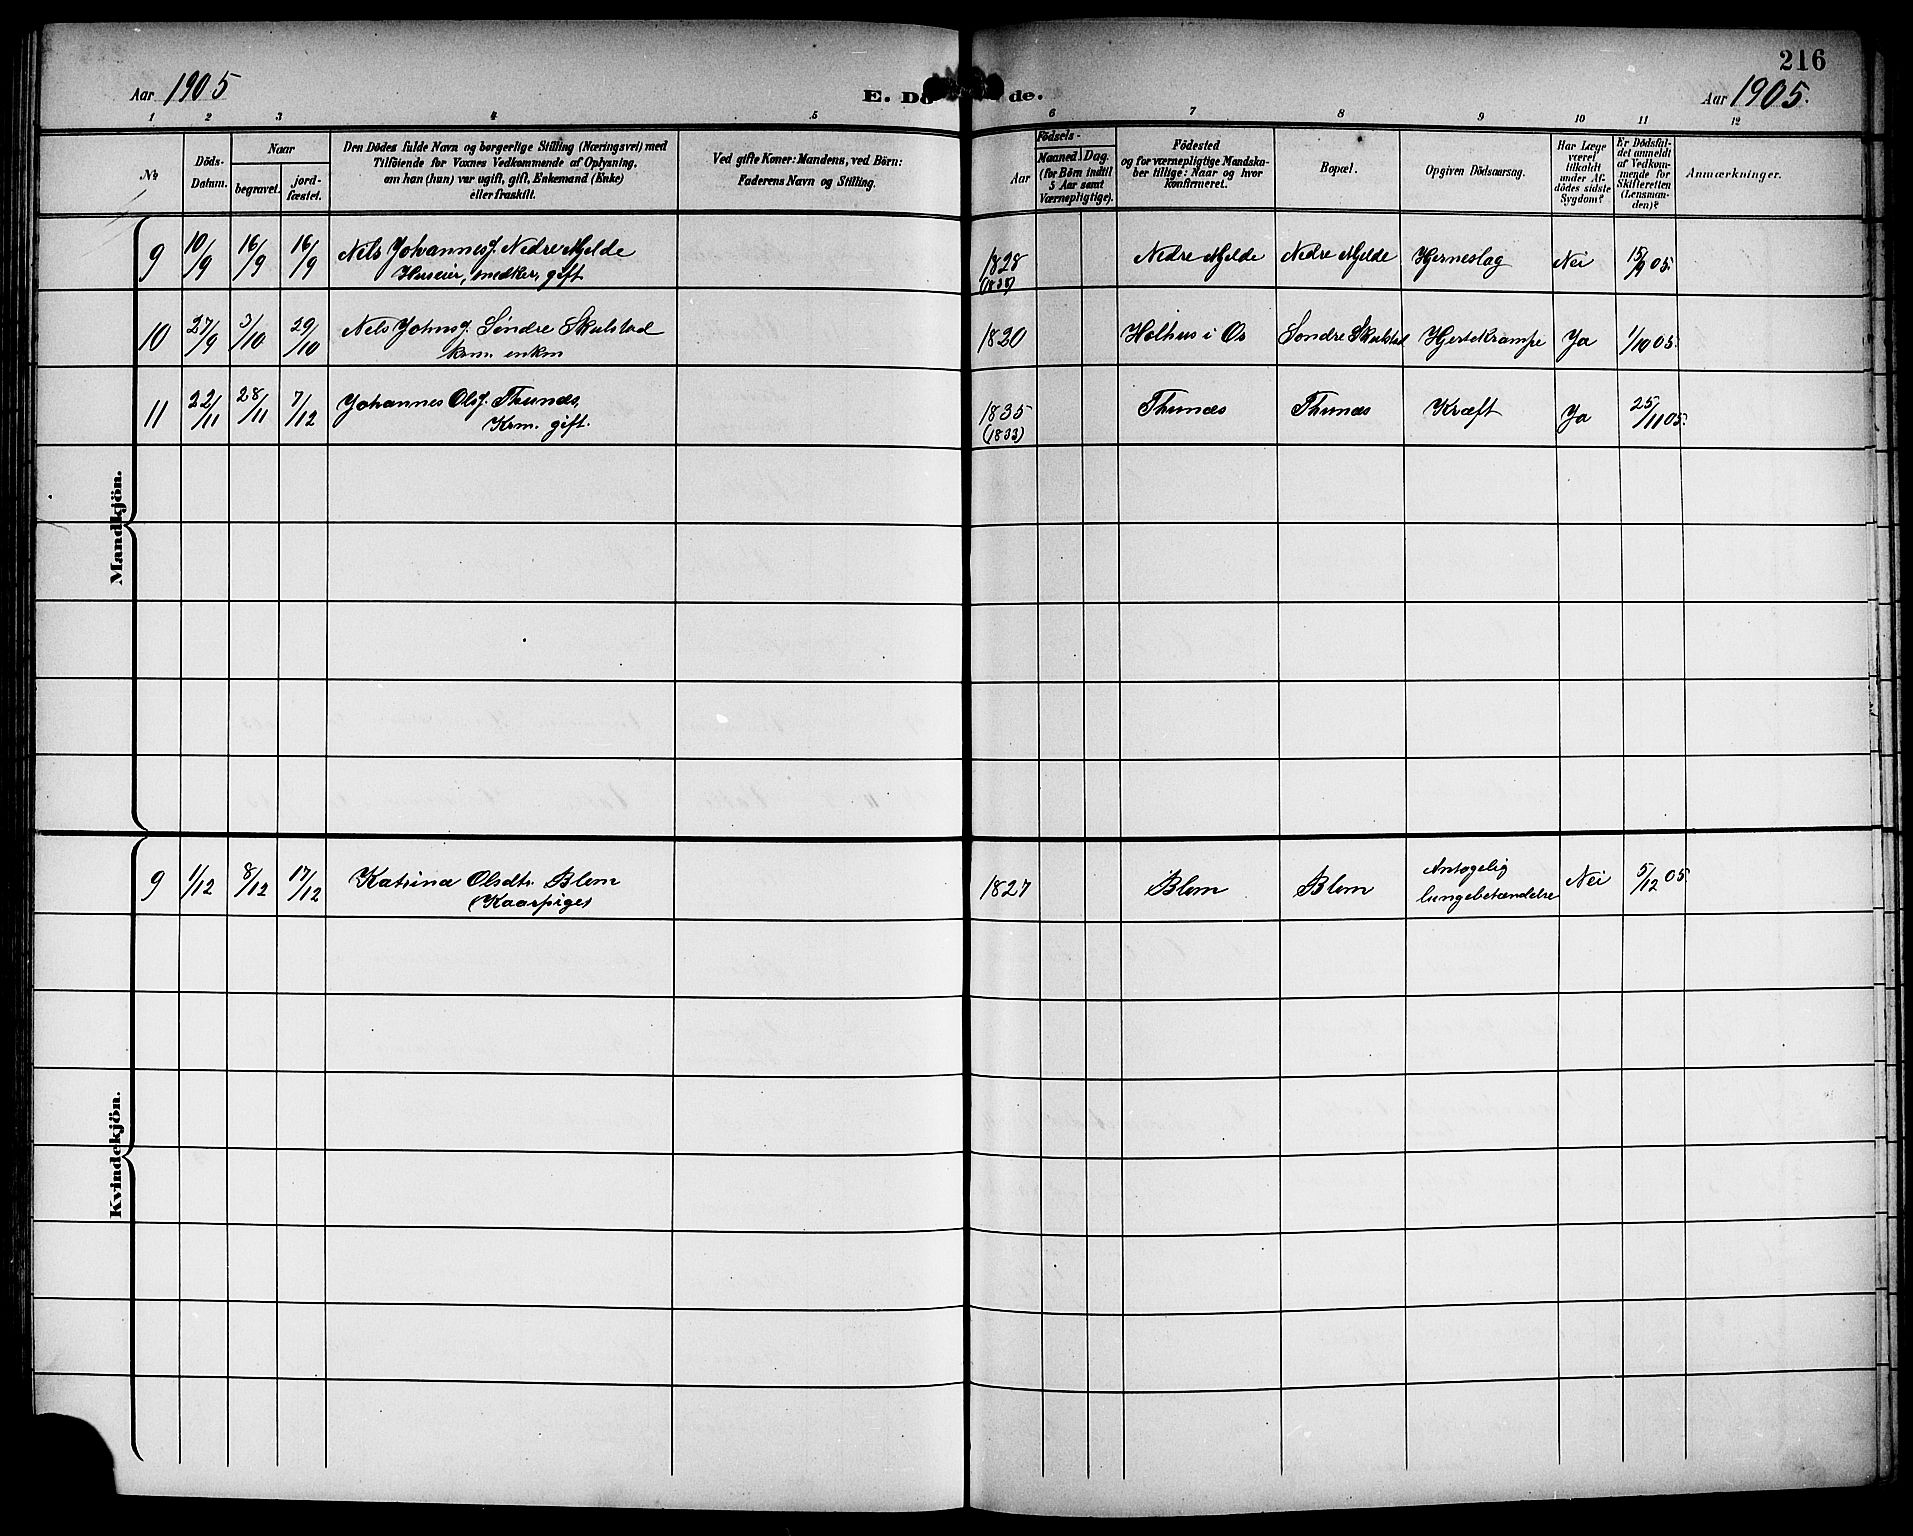 216
Aar 1905
E. Dö de.
Aar 1905.
1 2 3 4 5 6 7 8 9 10 11 12
№
Döds-Datum.
Naar
begravet.
jord-fæstet.
Den Dödes fulde Navn og borgerlige Stilling (Næringsvei) med
Tilföiende for Voxnes Vedkommende af Oplysning,
om han (hun) var ugift, gift, Enkemand (Enke)
eller fraskilt.
Ved gifte Koner: Mandens, ved Börn:
Faderens Navn og Stilling.
Födsels-
Aar
Maaned. Dag.
(for Börn indtil
5 Aar samt
Værnepligtige).
Födested
og for værnepligtige Mandska-
ber tillige: Naar og hvor
konfirmeret.
Bopæl.
Opgiven Dödsaarsag.
Har Læge
været
tilkaldt
under Af-
dödes sidste
Sygdom?
Er Dödsfal-
det anmeldt
af Vedkom-
mende for
Skifteretten
(Lensman-
den)?
Anmærkninger.
Mandkjön.
9 10/9 16/9 16/9 Nels Johannesf. Nedre Mjelde 1828 Nedre Mjelde Nedre Mjelde Hjerneslag Nei 15/9 05.
Huseier, snedker, gift
10 27/9 3/10 29/10 Nels Johnsf. Söndre Skulstad 1820 Holhus i Os Söndre Skulstad Hjertekrampe Ja 1/10 05.
krm. enkm
11 22/11 28/11 7/12 Johannes Olsf. Thunæs, 1835 Thunæs Thunæs Kræft Ja 25/11 05.
Krm. gift. (1833)
Kvindekjön.
9 1/12 8/12 17/12 Katrina Olsdtr. Blom 1827 Blom Blom Antagelig Nei 5/12 05
(Kaarpige) lungebetændelse